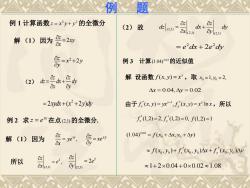 例 题
例 1 计算函数 z = x²y + y² 的全微分
解 (1) 因为 ∂z/∂x = 2xy
∂z/∂y = x² + 2y
(2) dz = ∂z/∂x dx + ∂z/∂y dy
= 2xydx + (x² + 2y)dy
例 2 求 z = e^{xy} 在点 (2,1) 的全微分.
解 (1) 因为 ∂z/∂x = ye^{xy}, ∂z/∂y = xe^{xy}
所以 ∂z/∂x|(2,1) = e², ∂z/∂y|(2,1) = 2e²
(2) 故 dz|(2,1) = ∂z/∂x|(2,1) dx + ∂z/∂y|(2,1) dy
= e²dx + 2e²dy
例 3 计算 (1.04)^{2.02} 的近似值
解 设函数 f(x,y) = x^y , 取 x₀ = 1, y₀ = 2,
Δx = 0.04, Δy = 0.02
由于 f_x(x,y) = yx^{y-1}, f_y(x,y) = x^y ln x, 所以
f_x(1,2) = 2, f_y(1,2) = 0, f(1,2) = 1
(1.04)^{2.02} = f(x₀ + Δx, y₀ + Δy)
≈ f(x₀, y₀) + f_x(x₀, y₀)Δx + f_y(x₀, y₀)Δy
≈ 1 + 2×0.04 + 0×0.02 ≈ 1.08